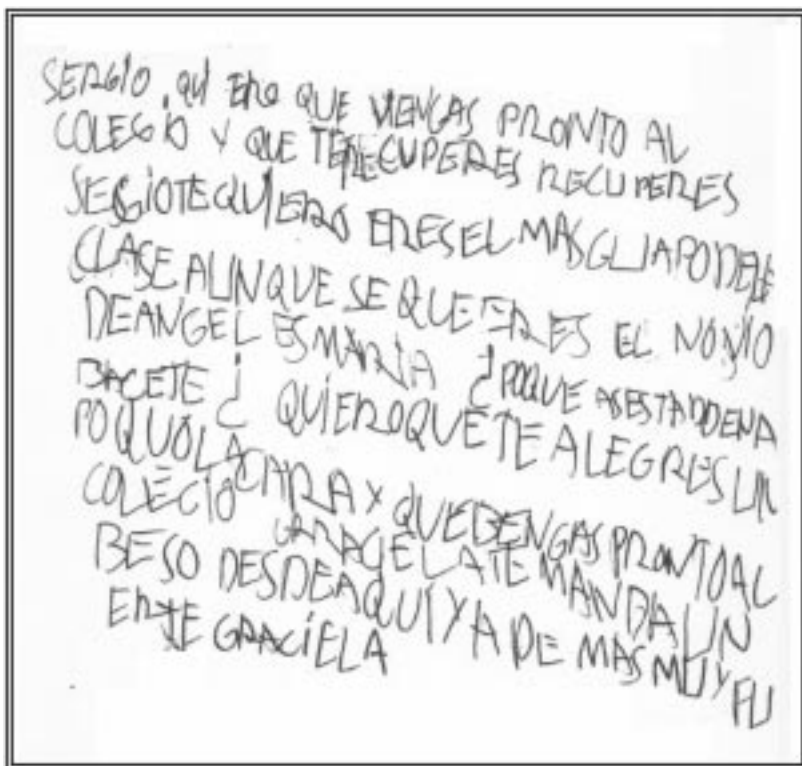 SERGIO, QUI ERO QUE VIENGAS PRONTO AL
COLEGIO Y QUE TERECUPERES RECUPERES
SERGIOTEQUIERO ERESEL MASGUAPODELE
CLASEAUNQUE SE QUE ERES EL NOVIO
DEANGEL ESMARIA ¿POQUE ASESTADOENA
BACETE ¿ QUIEROQUETE ALEGRES UN
POQUOLACARA Y QUEBENGAS PRONTOAL
COLEGIO GRACIELATE MANDA UN
BESO DESDEAQUI Y A DE MAS MUY FU
ERTE GRACIELA